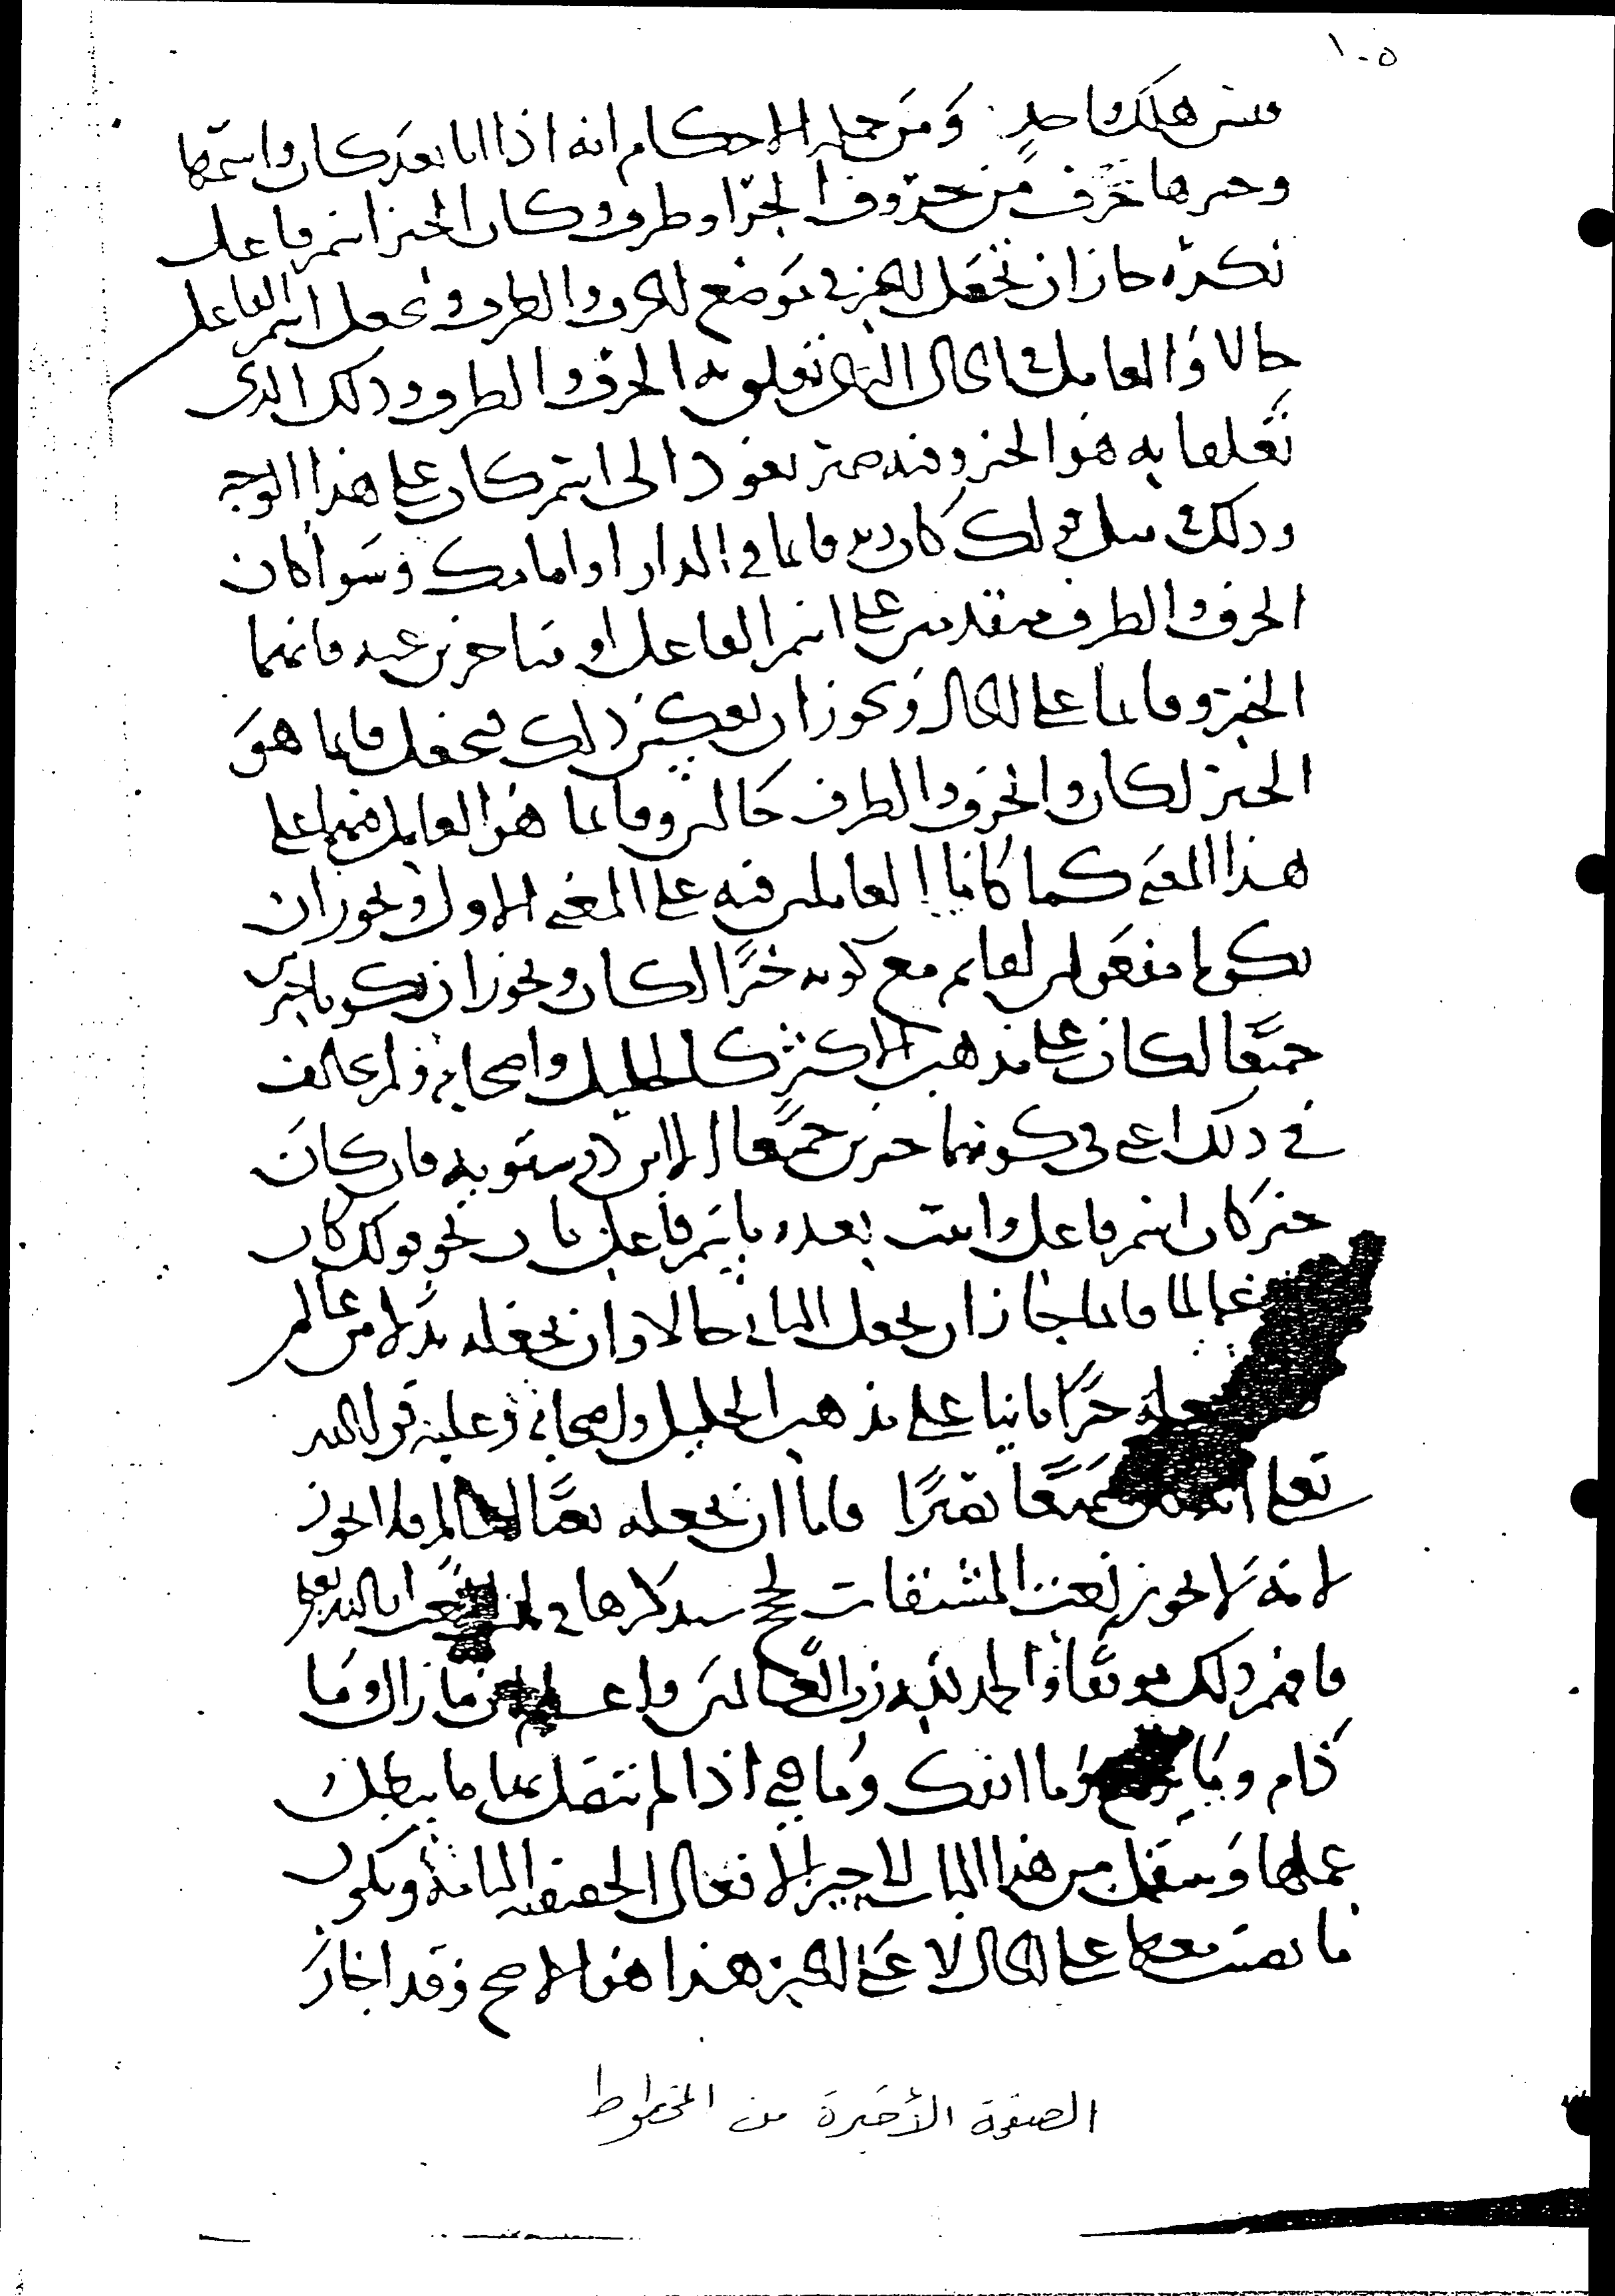 ١٠٥
هلك واحد ومن جملة الاحكام انه اذا اتا بعد كان واسمها
وخبرها حرف من حروف الجر او ظرف وكان الخبر اسم فاعل
نكره جاز ان تجعل الخبر في موضع الحرف والظرف وتجعل اسم الفاعل
حالا والعامل في الحال الذى تعلق به الحرف والظرف وذلك الذى
تعلقا به هو الخبر وفيه ضمير يعود الى اسم كان على هذا الوجه
وذلك مثل قولك كان زيد قائما في الدار او امامك وسوا كان
الحرف والظرف متقدمين على اسم الفاعل او متاخرين عنه فانهما
الخبر وقائما على الحال ويجوز ان تعكس ذلك فتجعل قائما هو
الخبر لكان والحرف والظرف حالين وقائما هو العامل فيهما على
هذا المعنى كما كانا العاملين فيه على المعنى الاول ويجوز ان
يكونا مفعولين لقايم مع كونه خبرًا لكان ويجوز ان يكونا خبرين
جميعًا لكان على مذهب الاكثر كالخليل واصحابه ولم يخالف
في ذلك اعني في كونهما خبرين جميعًا الا ابن درستويه فان كان
خبر كان اسم فاعل واتيت بعده باسم فاعل ثان نحو قولك كان
عالما قائما جاز ان تجعل الثاني حالا وان تجعله بدلا من عالم
تجعله خبرًا ثانيا على مذهب الخليل واصحابه وعليه قول الله
تعالى سميعًا بصيرًا فاما ان تجعله نعتًا لعالم فلا يجوز
لانه لا يجوز نعت المشتقات لحجج سنذكرها في النعت ان شا الله تعالى
فافهم ذلك موفقًا والحمد لله رب العالمين واعلم ان ما زال وما
دام وما برح وما انفك وما فتي اذا لم تتصل بها ما يبطل
عملها وسقل من هذا الباب الى حيز الافعال الحقيقيه التامة ويكون
ما نصبت معها على الحال لا على الخبر هذا هو الاصح وقد اجاز
الصفحة الأخيرة من المخطوط